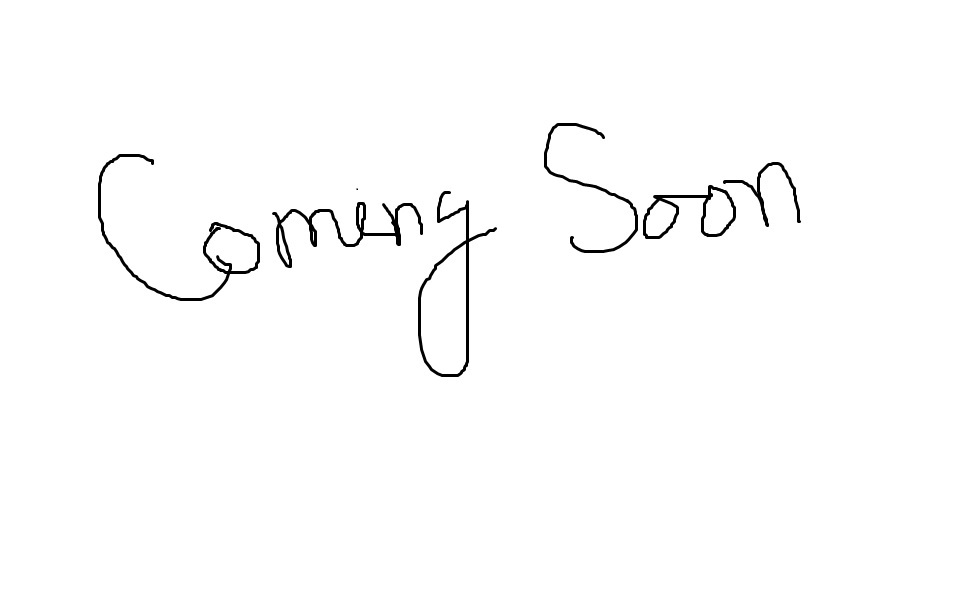 Coming Soon